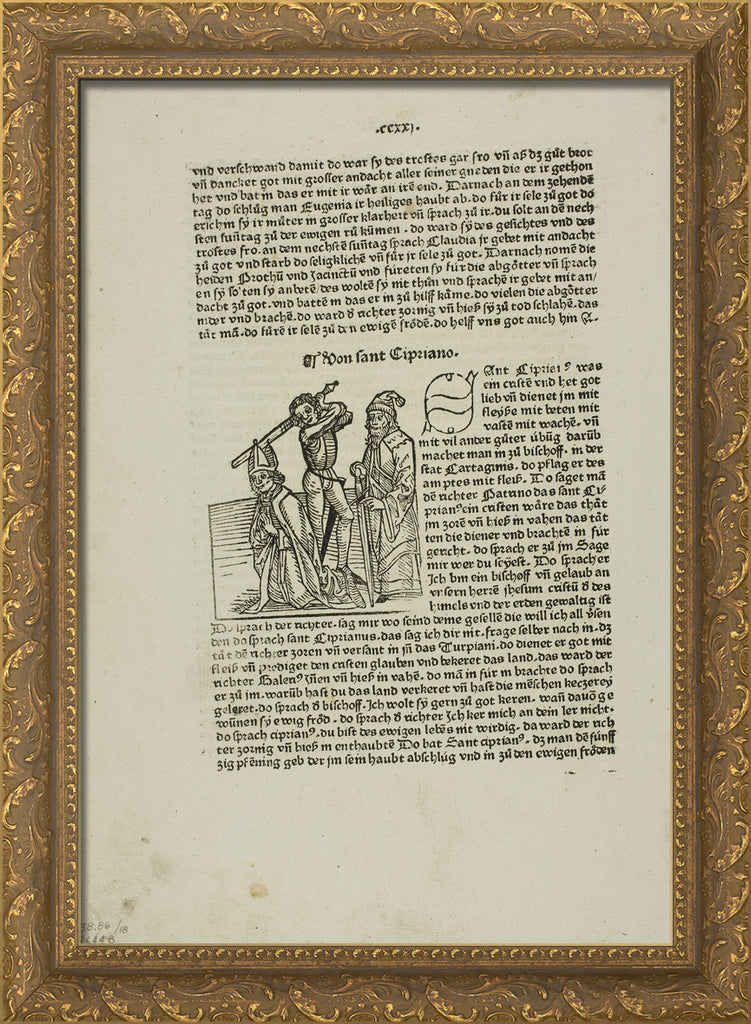 .ccxxj.
vnd verschwand damit do war sy des trostes gar fro vñ aß dz gůt brot
vñ dancket got mit grosser andacht aller seiner gneden die er ir gethon
het vnd bat in das er mit ir wår an irē end. Darnach an dem zehendē
tag do schlůg man Eugenia ir heiliges haubt ab. do fůr ir sele zů got do
erschin sy ir můter in grosser klarheit vñ sprach zů ir. du solt an dē nech
sten suntag zů der ewigen rů kůmen. do ward sy des gesichtes vnd des
trostes fro. an dem nechstē suntag sprach Claudia jr gebet mit andacht
zů got vnd starb do seligklichē vñ fůr jr sele zů got. Darnach nomē die
heiden Prothū vnd Jacinctū vnd fůreten sy fůr die abgötter vñ sprach
en sy solten sy anbetē/des woltē sy nit thůn vnd sprachē ir gebet mit an/
dacht zů got. vnd battē in das er in zů hilff kåme. do vielen die abgötter
nider vnd brachē. do ward ð richter zornig vñ hieß sy zů tod schlahē. das
tåt mā. do fůrē ir selē zů den ewigē frödē. do helff vns got auch hin A.
¶ Von sant Cipriano.
SAnt Ciprianꝰ was
ein cristē vnd het got
lieb vñ dienet jm mit
fleyße mit beten mit
vastē mit wachē. vñ
mit vil ander gůter übūg darůb
machet man in zů bischoff. in der
stat Cartaginis. do pflag er des
amptes mit fleiß. Do saget mā
dē richter Patrino das sant Ci-
prianꝰ ein cristen wåre das thåt
jm zorē vñ hieß in vahen das tåt
ten die diener vnd brachtē in fůr
gericht. do sprach er zů jm Sage
mir wer du seyest. Do sprach er
Ich bin ein bischoff vñ gelaub an
vnsern herrē jhesum cristū ð des
himels vnd der erden gewaltig ist
Do sprach der richter. sag mir wo seind deine gesellē die will ich all vsen
den do sprach sant Ciprianus. das sag ich dir nit. frage selber nach in. dz
tåt dē richter zoren vñ versant in jn das Turpiani. do dienet er got mit
fleiß vñ prediget den cristen glauben vnd bekeret das land. das ward der
richter Galerꝰ innen vñ hieß in vahē. do mā in fůr in brachte do sprach
er zů jm. warůb hast du das land verkeret vñ hast die mēschen keczerey
geleret. do sprach ð bischoff. Ich wolt sy gern zů got keren. wañ dauō ge
wūnen sy ewig fröd. do sprach ð richter Ich ker mich an dein ler nicht.
do sprach ciprianꝰ. du bist des ewigen lebēs nit wirdig. da ward der rich
ter zornig vñ hieß in enthaubtē Do bat Sant ciprianꝰ. dz man dē fůnff
zig pfēning geb der jm sein haubt abschlůg vnd in zů den ewigen fröden